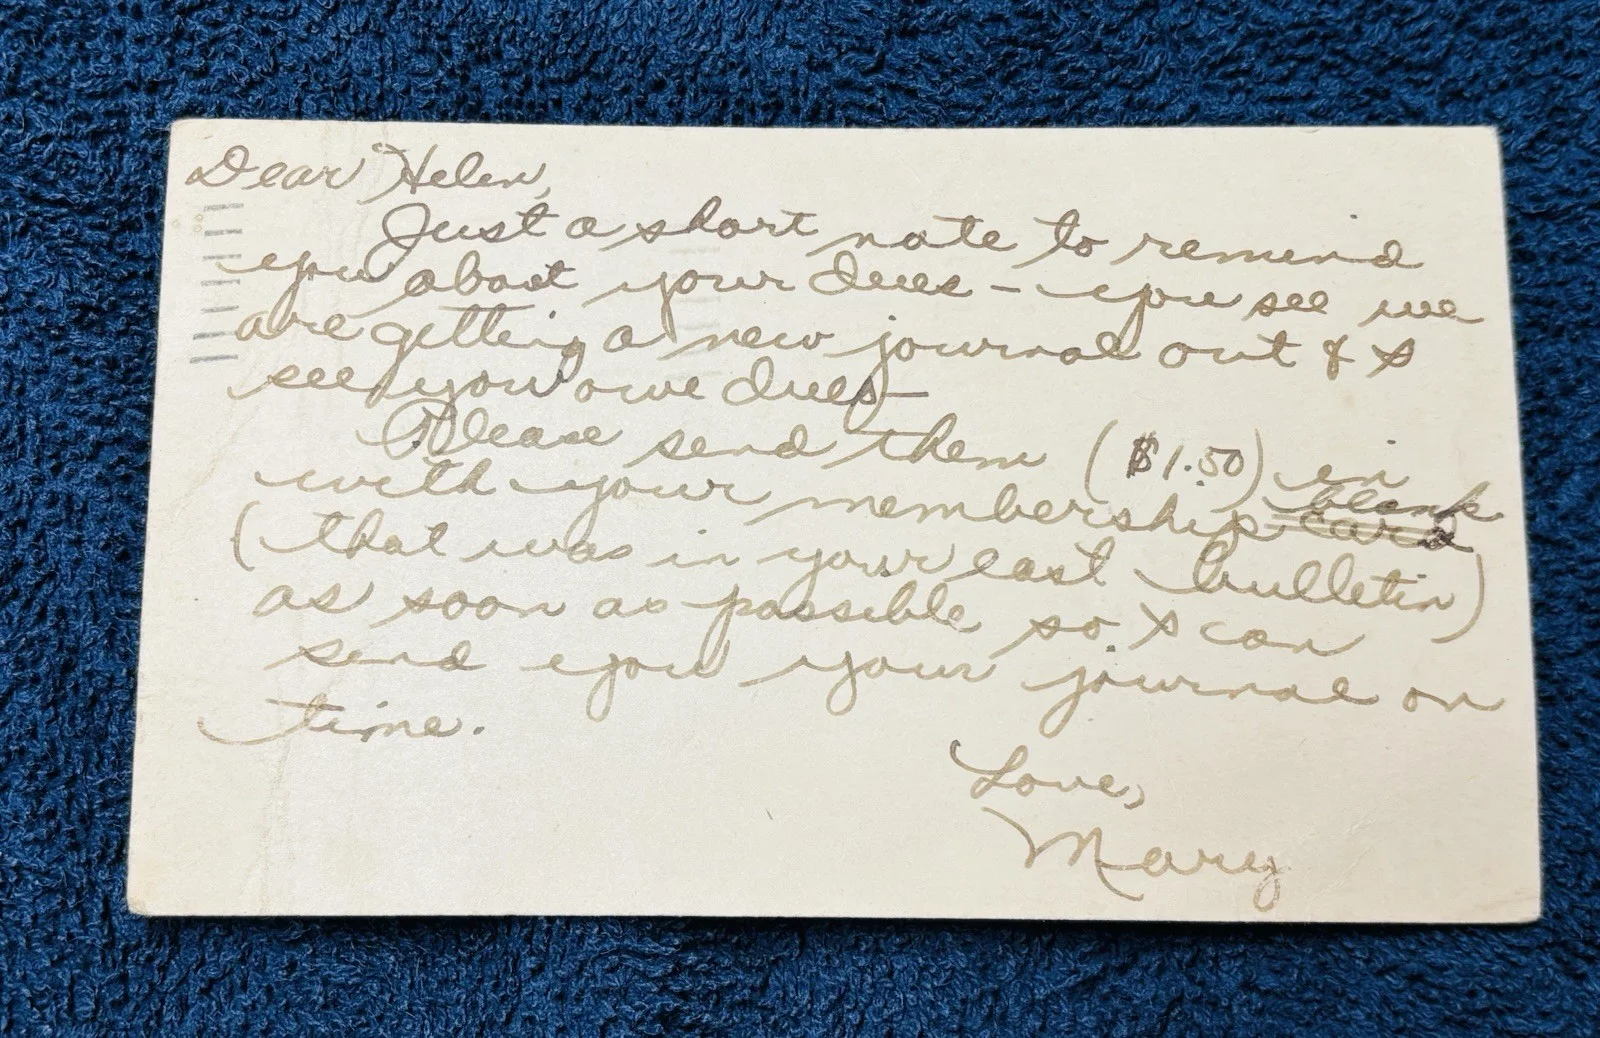 Dear Helen,
Just a short note to remind
you about your dues - you see we
are getting a new journal out & I
see you owe dues -
Please send them ($1.50) in
with your membership card blank
(that was in your last bulletin)
as soon as possible so I can
send you your journal on
time.
Love,
Mary